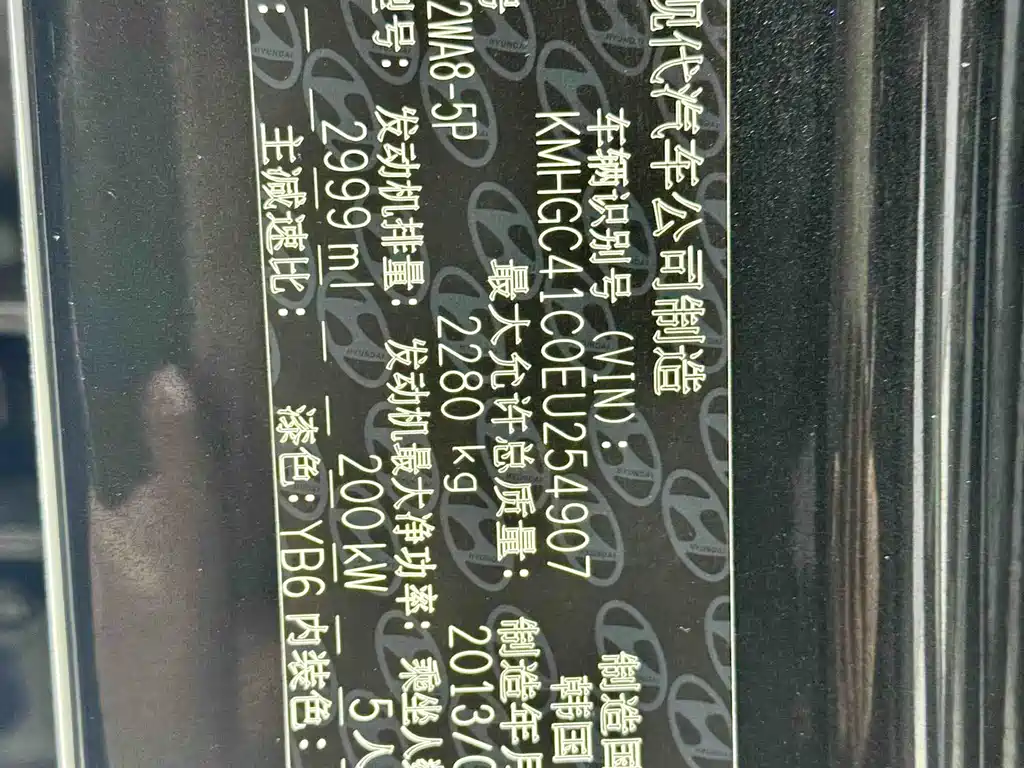 现代汽车公司制造
车辆识别号 (VIN): 制造国
KMHGC41C0EU254907 韩国
号 最大允许总质量: 制造年月
2WA8-5P 2280 kg 2013/0
型号: 发动机排量: 发动机最大净功率: 乘坐人数
2999ml 200kW 5人
: 主减速比: 漆色:YB6 内装色: